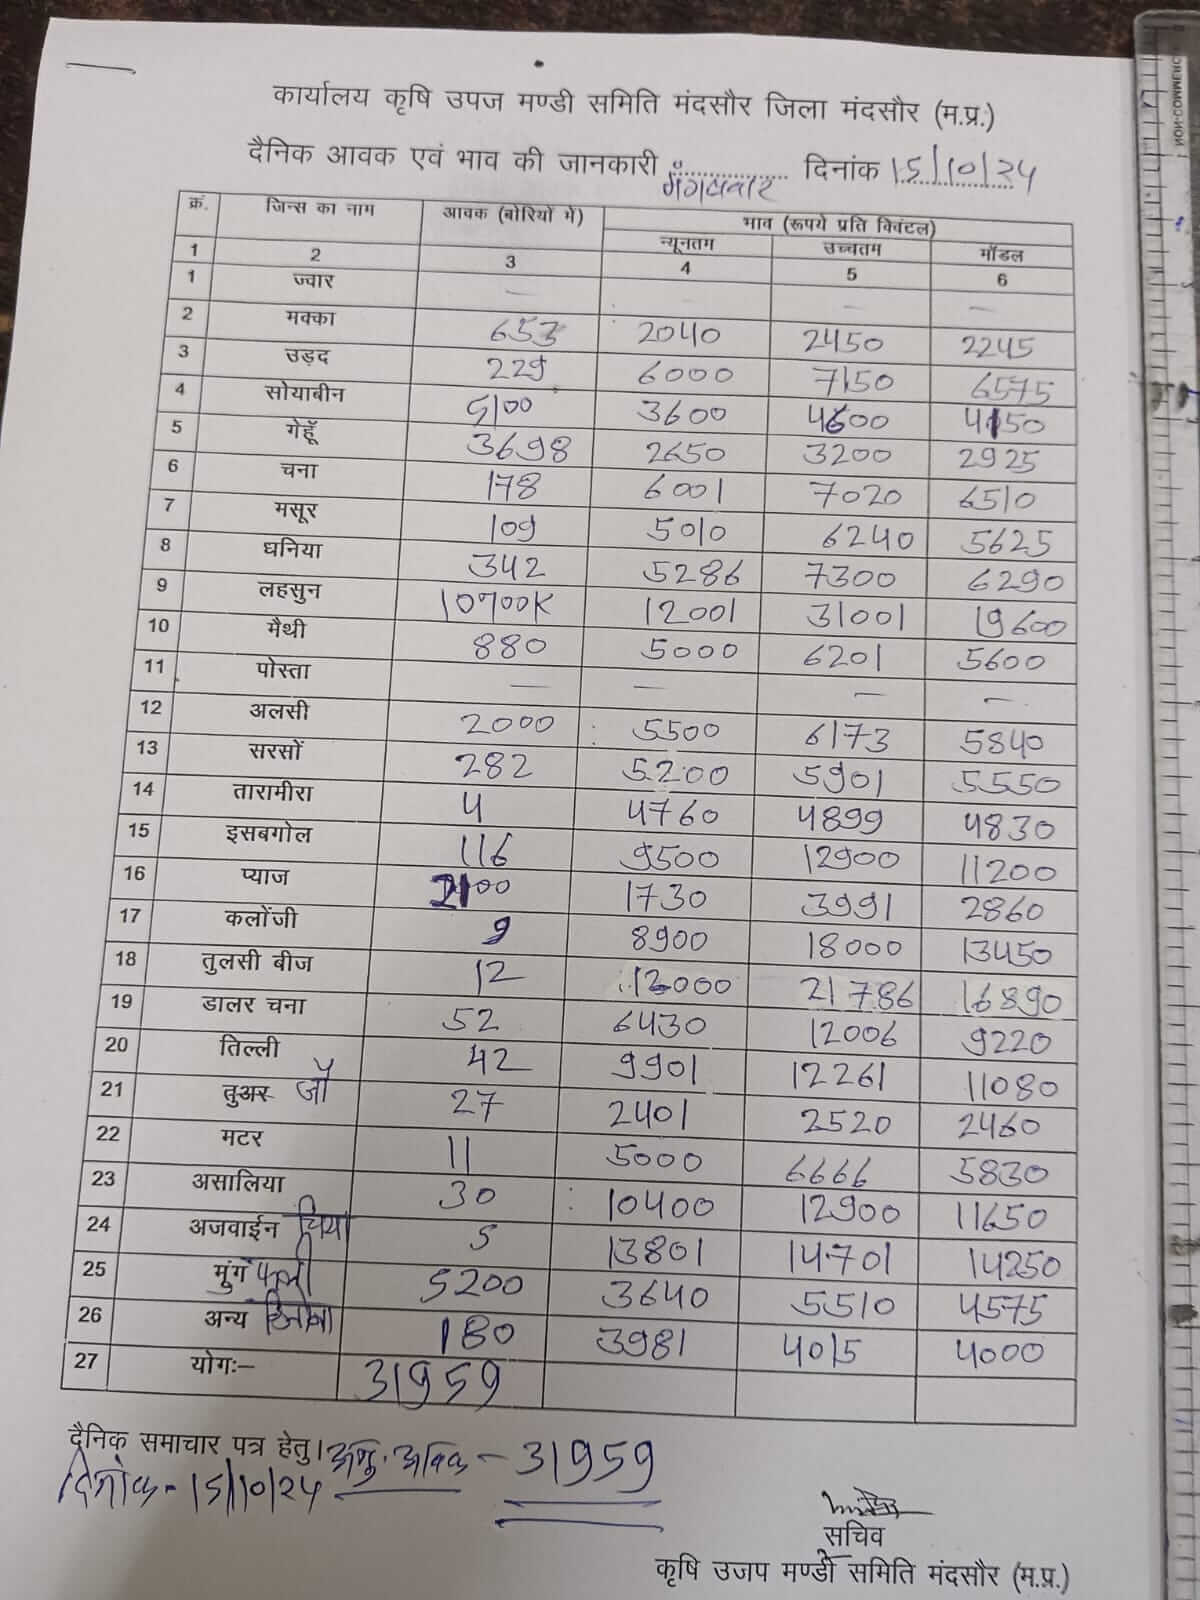 कार्यालय कृषि उपज मण्डी समिति मंदसौर जिला मंदसौर (म.प्र.)
दैनिक आवक एवं भाव की जानकारी मंगलवार दिनांक 15/10/24
क्र. जिन्स का नाम आवक (बोरियों में) भाव (रूपये प्रति क्विंटल)
न्यूनतम उच्चतम मॉडल
1 2 3 4 5 6
1 ज्वार — — — —
2 मक्का 653 2040 2450 2245
3 उड़द 229 6000 7150 6575
4 सोयाबीन 5100 3600 4600 4150
5 गेहूँ 3698 2650 3200 2925
6 चना 178 6001 7020 6510
7 मसूर 109 5010 6240 5625
8 धनिया 342 5286 7300 6290
9 लहसुन 10700K 12001 31001 19600
10 मैथी 880 5000 6201 5600
11 पोस्ता — — — —
12 अलसी 2000 5500 6173 5840
13 सरसों 282 5200 5901 5550
14 तारामीरा 4 4760 4899 4830
15 इसबगोल 116 9500 12900 11200
16 प्याज 2100 1730 3991 2860
17 कलोंजी 9 8900 18000 13450
18 तुलसी बीज 12 12000 21786 16890
19 डालर चना 52 6430 12006 9220
20 तिल्ली 42 9901 12261 11080
21 तुअर जौ 27 2401 2520 2460
22 मटर 11 5000 6666 5830
23 असालिया 30 10400 12900 11650
24 अजवाईन चिया 5 13801 14701 14250
25 मुंगफली 5200 3640 5510 4575
26 अन्य 180 3981 4015 4000
27 योगः– 31959
दैनिक समाचार पत्र हेतु। अनु. आवक – 31959
दिनांक - 15/10/24
सचिव
कृषि उजप मण्डी समिति मंदसौर (म.प्र.)